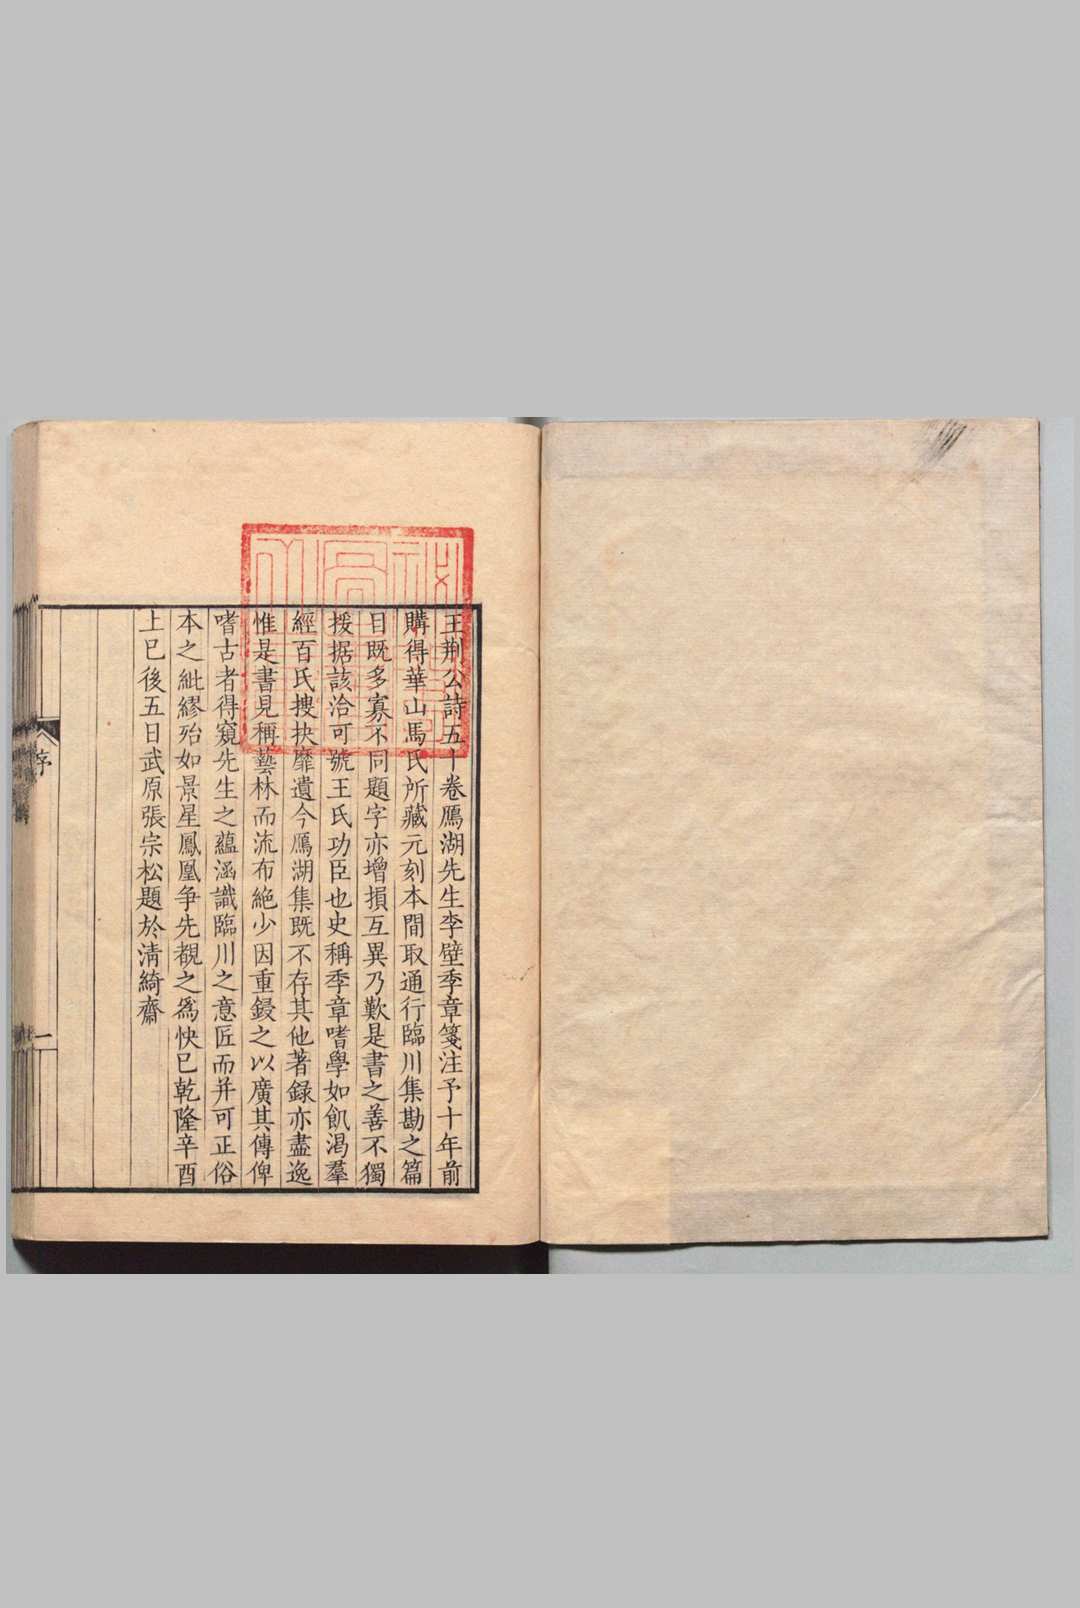 王荆公詩五十卷鴈湖先生李壁季章箋注予十年前
購得華山馬氏所藏元刻本間取通行臨川集勘之篇
目既多寡不同題字亦增損互異乃歎是書之善不獨
援据該洽可號王氏功臣也史稱季章嗜學如飢渴羣
經百氏搜抉靡遺今鴈湖集既不存其他著録亦盡逸
惟是書見稱藝林而流布絶少因重鋟之以廣其傳俾
嗜古者得窺先生之蘊涵識臨川之意匠而并可正俗
本之紕繆殆如景星鳳凰争先覩之爲快已乾隆辛酉
上巳後五日武原張宗松題於清綺齋
序
一